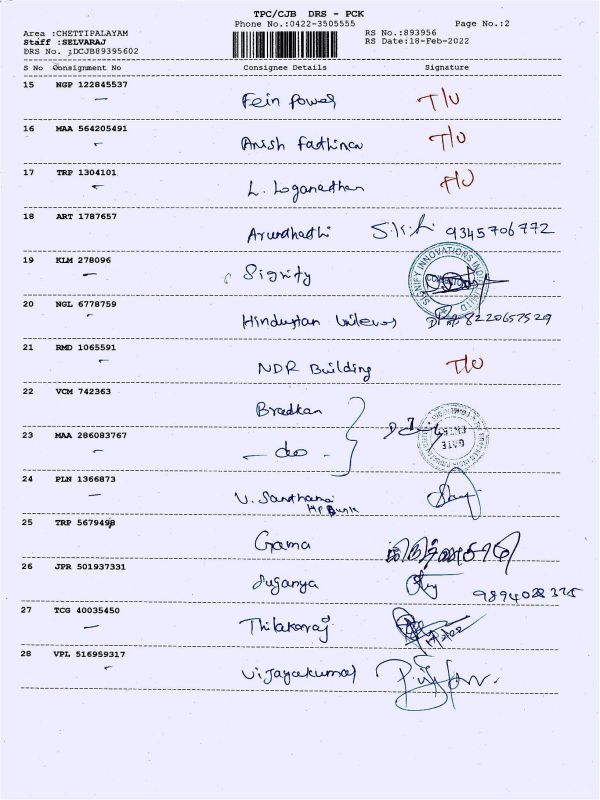 TPC/CJB DRS - PCK
Phone No.:0422-3505555 Page No.:2
Area :CHETTIPALAYAM RS No.:893956
Staff :SELVARAJ RS Date:18-Feb-2022
DRS No. :DCJB89395602
S No Consignment No Consignee Details Signature
15 NGP 122845537
Fein Power T/U
16 MAA 564205491
Anish Fathima T/U
17 TRP 1304101
L. Loganathan T/U
18 ART 1787657
Arundhathi 9345706772
19 KLM 278096
Signify SIGNIFY INNOVATIONS
20 NGL 6778759
Hindustan Unilever 8220657529
21 RMD 1065591
NDR Building T/U
22 VCM 742363
Bradkan
23 MAA 286083767
- do - GATE
24 PLN 1366873
V. Santhana
HP Bunk
25 TRP 5679498
Gama
26 JPR 501937331
Suganya
27 TCG 40035450
Thilakaraj
28 VPL 516959317
Vijayakumar